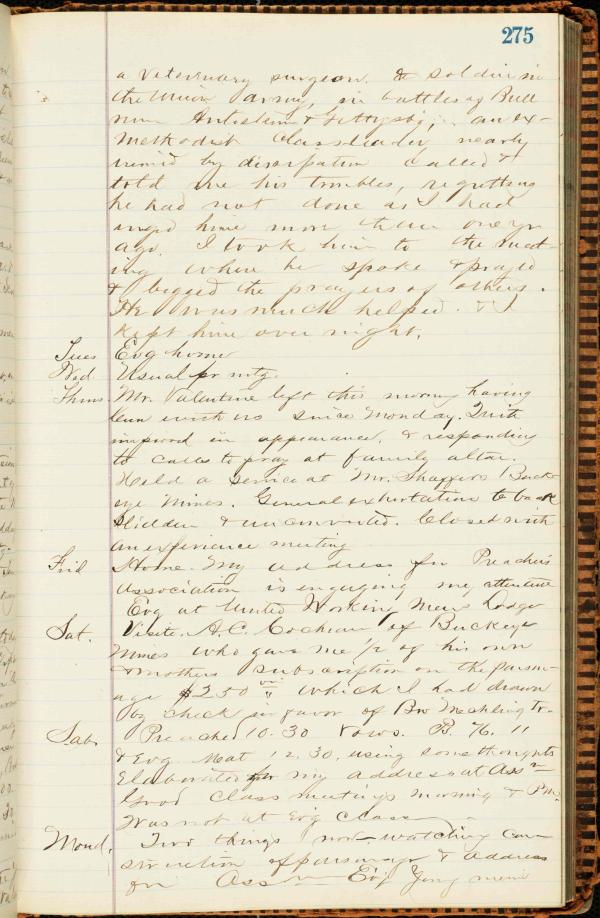 275
a veterinary surgeon. & soldier in
the Union army, in battles of Bull
run Antietam & Gettysbg, an ex-
methodist Classleader nearly
ruined by dissipation called &
told me his troubles, regretting
he had not done as I had
urged him more than one yr
ago. I took him to the meet-
ing where he spoke & prayed
& begged the prayers of others.
He was much helped. & I
kept him over night.
Tues Evg home
Wed. Usual pr mtg.
Thurs Mr. Valentine left this morng having
been with us since Monday. Quite
improved in appearance, & responding
to calls to pray at family altar.
Held a service at Mr. Shaffers Buck-
eye Mines. General exhortation to back
slidden & unconverted. Closed with
an experience meeting
Frid Home. My address for Preacher's
Association is engaging my attention
Evg at United Working Mens Lodge
Sat. Visited A.C. Cochran of Buckeye
Mines who gave me 1/2 of his own
& mothers subscription on the parson-
age $250 which I had drawn
by check in favor of Bro Mechling Tr.
Sab. Preached 10.30 Vows. 76. 11
& Evg. Mat 12, 30, using some thoughts
Elaborated for my address at Assn
Good Class meetings morning & P.M.
Was not at Evg Class
Mond. Two things now - watching con-
struction of parsonage & address
for Assn Evg Yong mens